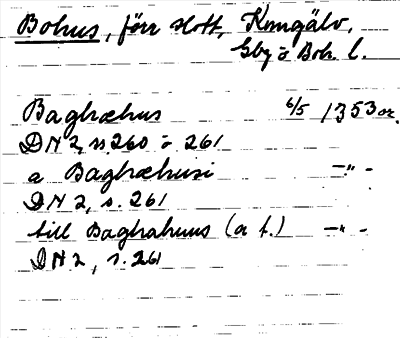 Bohus, förr slott, Kungälv,
Gbg o Boh. l.
Baghæhus 6/5 1353 or.
DN 2, s. 260 o 261
a Baghæhusi –"–
DN 2, s. 261
till Baghahuus (a f.) –"–
DN 2, s. 261